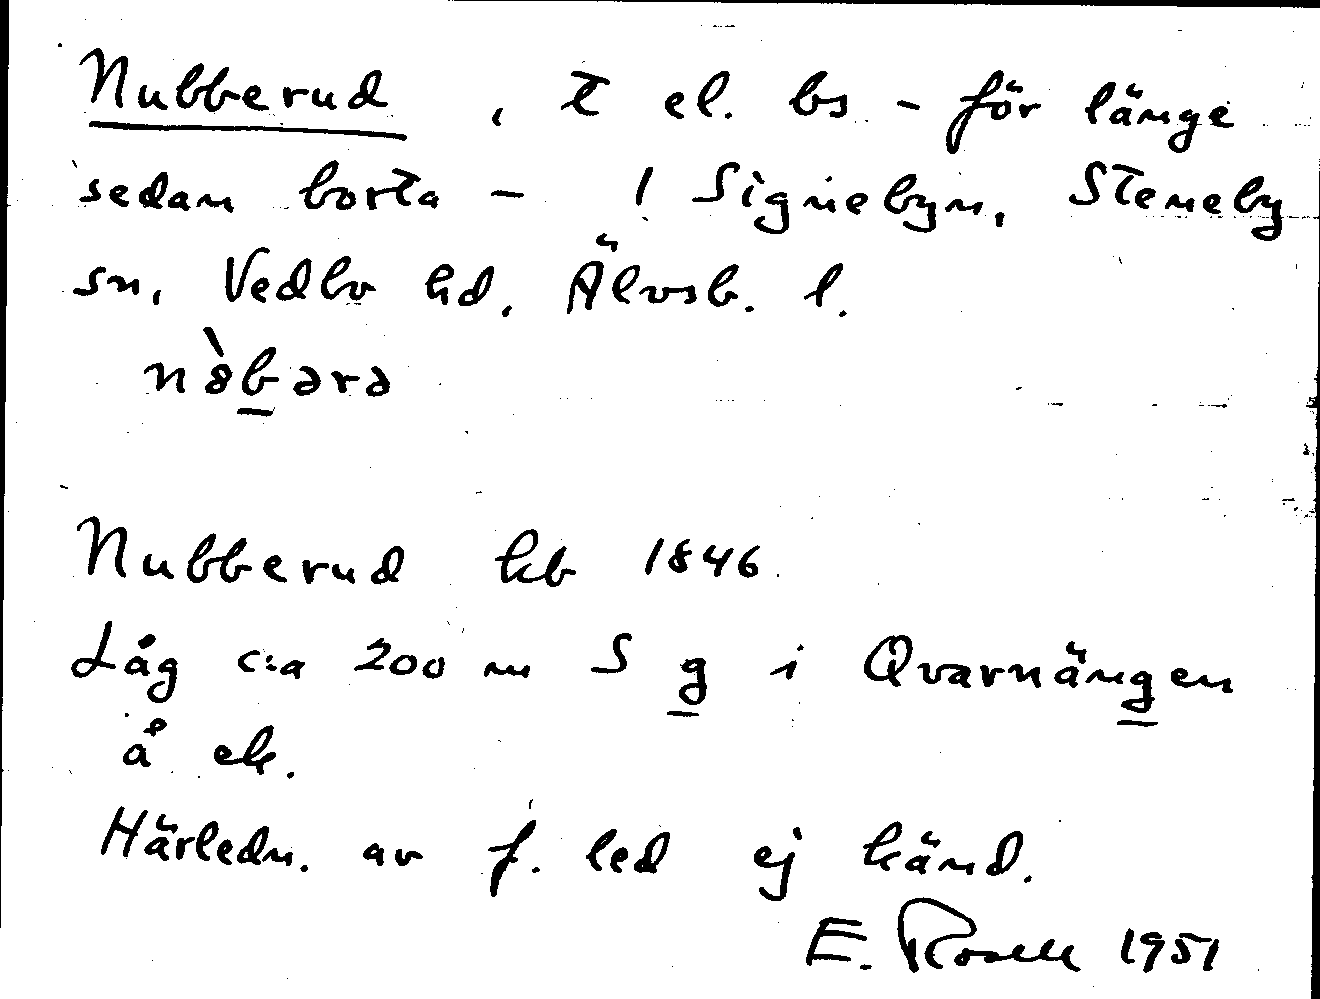 Nubberud, t el. bs - för länge
sedan borta - / Signebyn, Steneby
sn, Vedbo hd, Älvsb. l.
n&#x300;8bərə
Nubberud kb 1846
Låg c:a 200 m S g i Qvarnängen
å ek.
Härledn. av f. led ej känd.
E. Rosell 1951